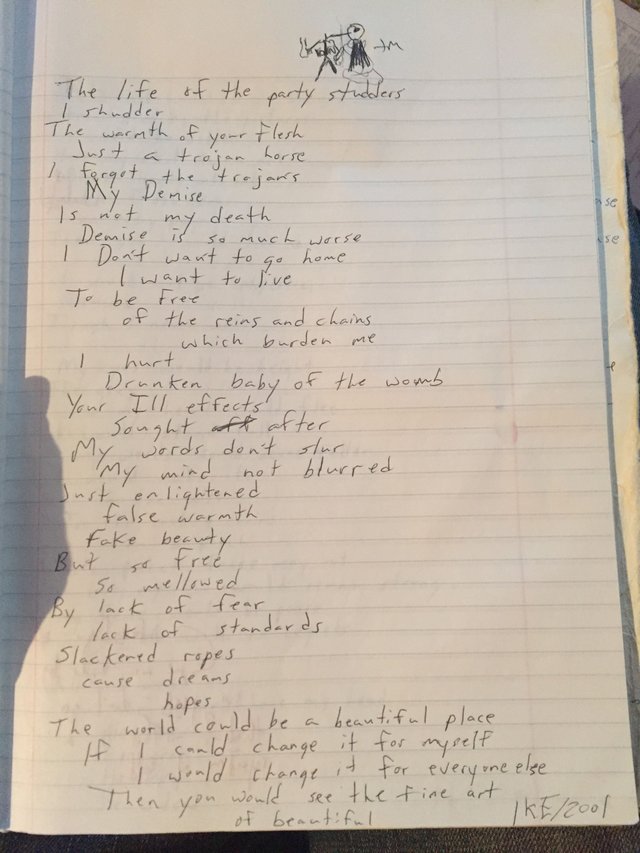 The life of the party studders
I shudder
The warmth of your flesh
Just a trojan horse
I forgot the trojans
My Demise
Is not my death
Demise is so much worse
I Don't want to go home
I want to live
To be free
of the reins and chains
which burden me
I hurt
Drunken baby of the womb
Your Ill effects
Sought after
My words don't slur
My mind not blurred
Just enlightened
false warmth
fake beauty
But so free
So mellowed
By lack of fear
lack of standards
Slackered ropes
cause dreams
hopes
The world could be a beautiful place
If I could change it for myself
I would change it for everyone else
Then you would see the fine art
of beautiful
IKE/2001
se
se